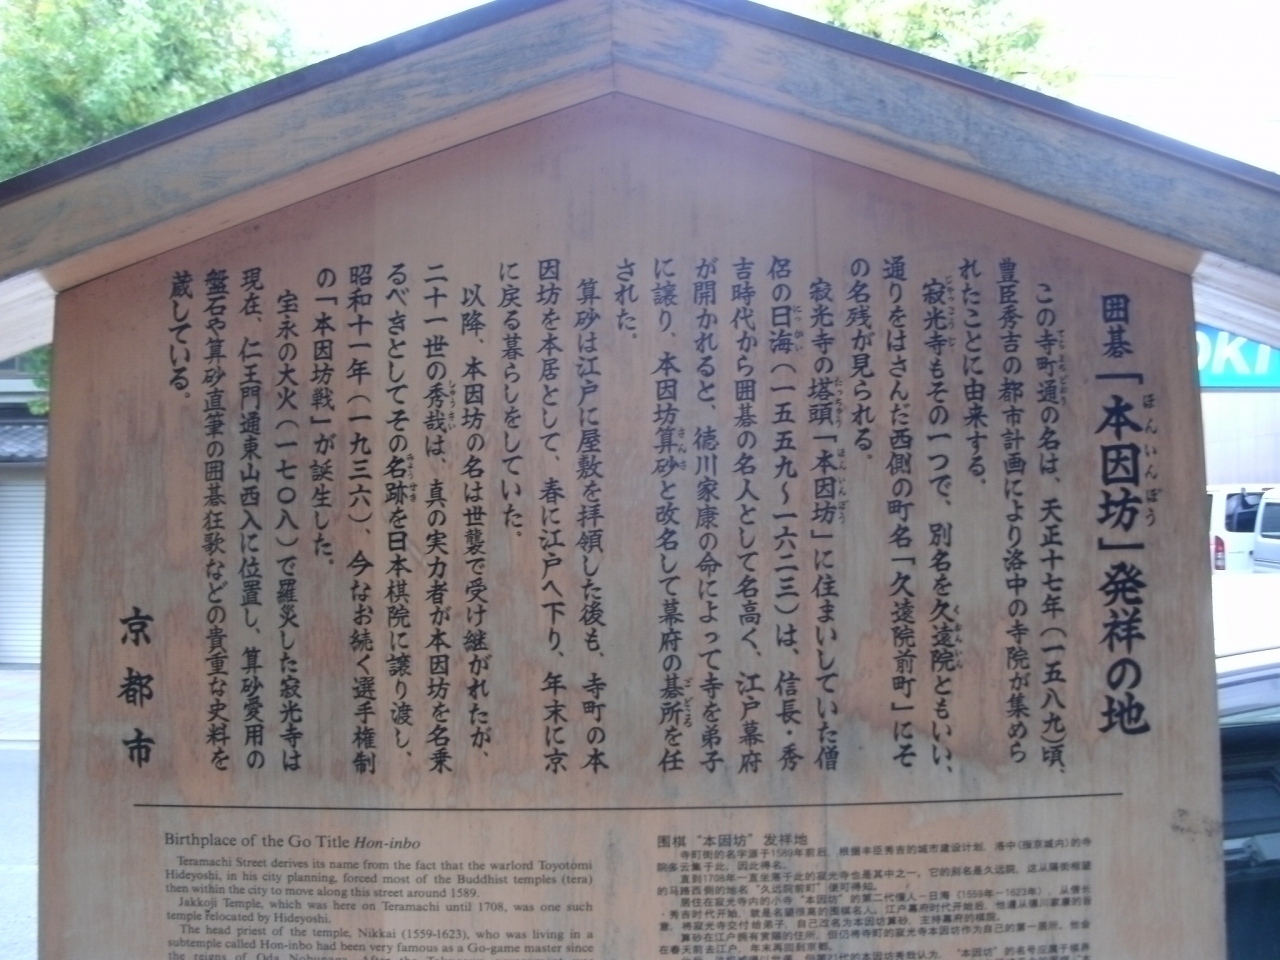 囲碁「本因坊」発祥の地
この寺町通の名は、天正十七年(一五八九)頃、
豊臣秀吉の都市計画により洛中の寺院が集めら
れたことに由来する。
寂光寺もその一つで、別名を久遠院ともいい、
通りをはさんだ西側の町名「久遠院前町」にそ
の名残が見られる。
寂光寺の塔頭「本因坊」に住まいしていた僧
侶の日海(一五五九〜一六二三)は、信長・秀
吉時代から囲碁の名人として名高く、江戸幕府
が開かれると、徳川家康の命によって寺を弟子
に譲り、本因坊算砂と改名して幕府の碁所を任
された。
算砂は江戸に屋敷を拝領した後も、寺町の本
因坊を本居として、春に江戸へ下り、年末に京
に戻る暮らしをしていた。
以降、本因坊の名は世襲で受け継がれたが、
二十一世の秀哉は、真の実力者が本因坊を名乗
るべきとしてその名跡を日本棋院に譲り渡し、
昭和十一年(一九三六)、今なお続く選手権制
の「本因坊戦」が誕生した。
宝永の大火(一七〇八)で罹災した寂光寺は
現在、仁王門通東山西入に位置し、算砂愛用の
盤石や算砂直筆の囲碁狂歌などの貴重な史料を
蔵している。
京都市
Birthplace of the Go Title Hon-inbo
Teramachi Street derives its name from the fact that the warlord Toyotomi
Hideyoshi, in his city planning, forced most of the Buddhist temples (tera)
then within the city to move along this street around 1589.
Jakkoji Temple, which was here on Teramachi until 1708, was one such
temple relocated by Hideyoshi.
The head priest of the temple, Nikkai (1559-1623), who was living in a
subtemple called Hon-inbo had been very famous as a Go-game master since
the reigns of Oda Nobunaga.
围棋“本因坊”发祥地
寺町街的名字源于1589年前后，根据丰臣秀吉的城市建设计划，洛中(指京城内)的寺
院多云集于此，因此得名。
直到1708年一直坐落于此的寂光寺也是其中之一，它的别名是久远院，这从隔街相望
的马路西侧的地名“久远院前町”便可得知。
居住在寂光寺内的小寺“本因坊”的第二代僧人－日海（1559年－1623年），从信长